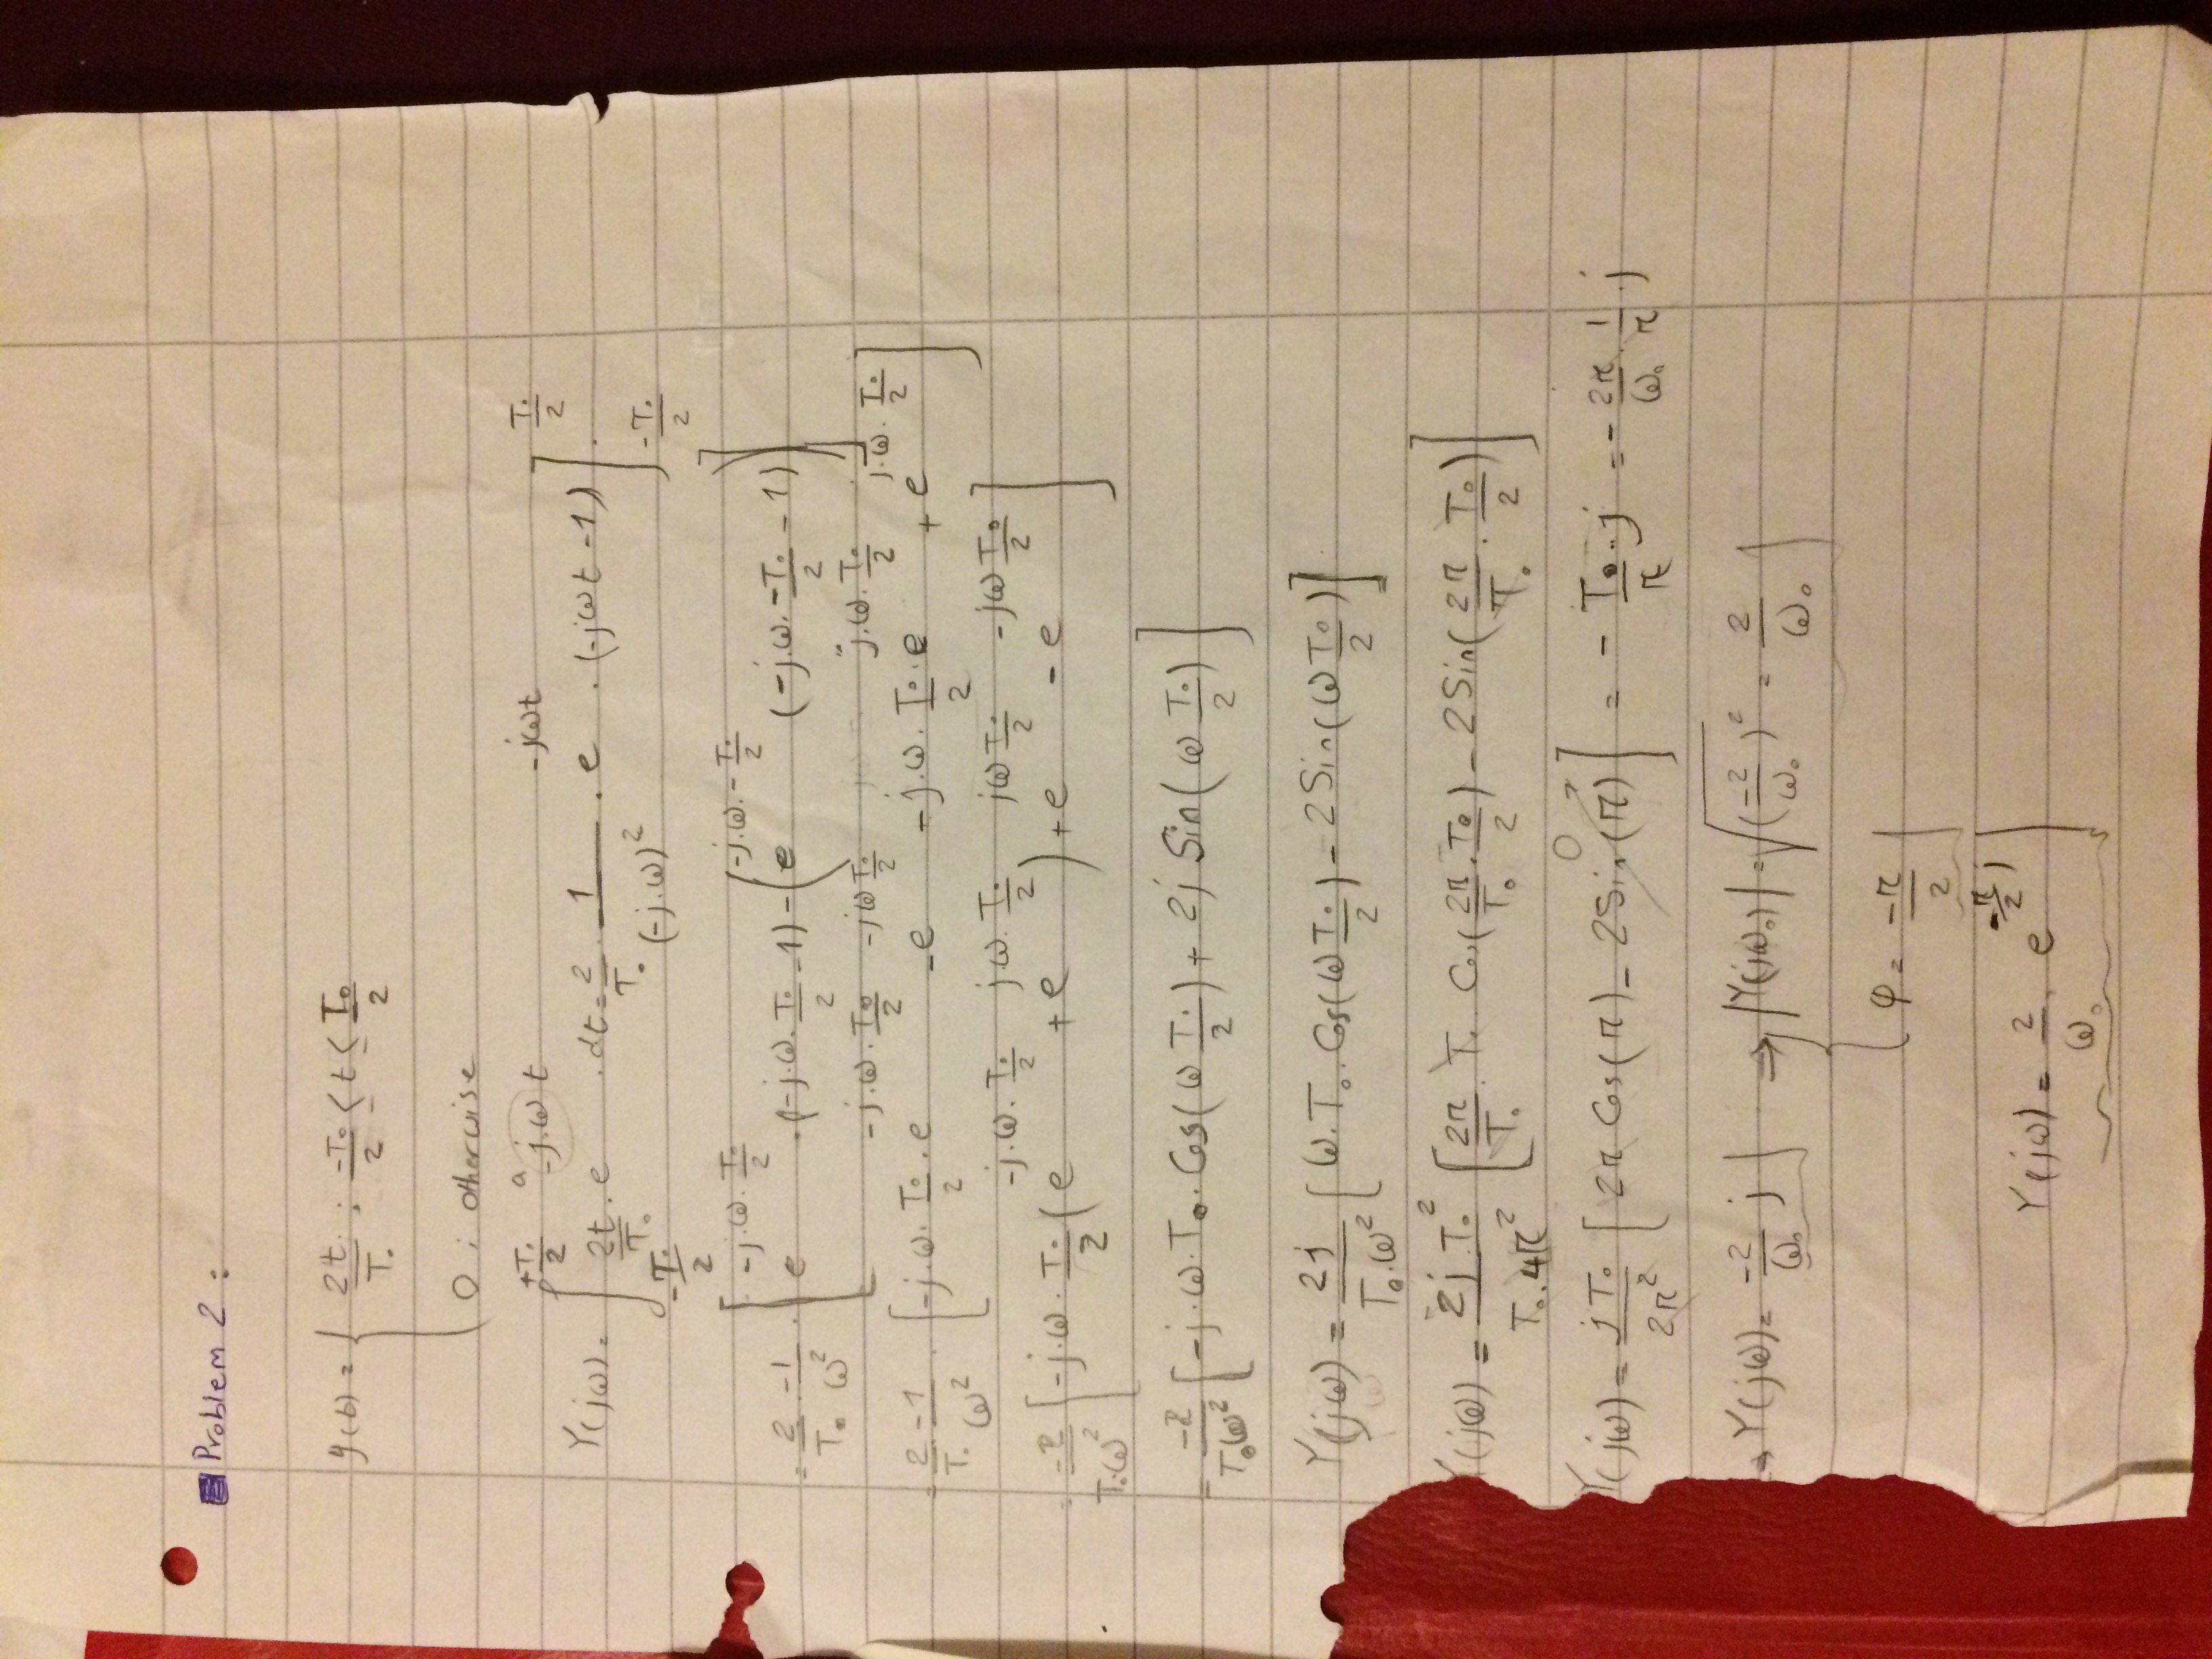 Problem 2 :
y(t) = { 2t/T₀ ; -T₀/2 ≤ t ≤ T₀/2
0 ; otherwise
Y(jω) = ∫_{-T₀/2}^{+T₀/2} 2t/T₀ . e^{-j.ω t} . dt = 2/T₀ . 1/(-j.ω)² . e^{-jωt} . (-jωt - 1) ]_{-T₀/2}^{T₀/2} .
= 2/T₀ . -1/ω² . [ e^{-j.ω.T₀/2} . (-j.ω.T₀/2 - 1) - ( e^{-j.ω.-T₀/2} (-j.ω.-T₀/2 - 1) ) ]
= 2/T₀ . -1/ω² . [ -j.ω.T₀/2 . e^{-j.ω.T₀/2} - e^{-jωT₀/2} - j.ω.T₀/2 . e^{j.ω.T₀/2} + e^{j.ω.T₀/2} ]
= -2/T₀.ω² [ -j.ω.T₀/2 ( e^{-j.ω.T₀/2} + e^{j.ω.T₀/2} ) + e^{jωT₀/2} - e^{-jωT₀/2} ]
= -2/T₀ω² [ -j.ω.T₀.Cos(ω T₀/2) + 2j Sin(ω T₀/2) ]
Y(jω) = 2j/T₀.ω² [ ω.T₀.Cos(ω T₀/2) - 2Sin(ω T₀/2) ]
Y(jω) = 2j.T₀²/T₀.4π² [ 2π/T₀ . T₀ . Cos(2π/T₀ . T₀/2) - 2Sin(2π/T₀ . T₀/2) ]
Y(jω) = jT₀/2π² [ 2π Cos(π) - 2Sin(π) 0 ] = - T₀/π . j = - 2π/ω₀ . 1/π . j
→ Y(jω) = -2/ω₀ j ⇒ { |Y(jω₀)| = √(-2/ω₀)² = 2/ω₀
φ = -π/2
Y(jω) = 2/ω₀ . e^{-π/2 j}